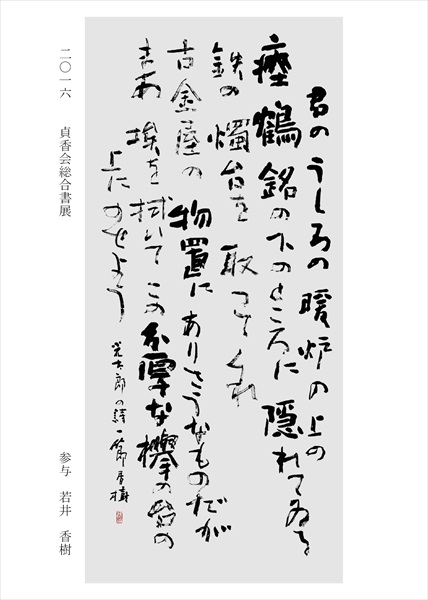 君のうしろの暖炉の上の
瘞鶴銘の下のところに隠れてゐる
鉄の燭台を取つてくれ
古金屋の物置にありさうなものだが
まあ埃を拭いてこの分厚な欅の の
上にのせよう
光太郎の詩一節 香樹
二〇一六 貞香会総合書展
参与 若井 香樹